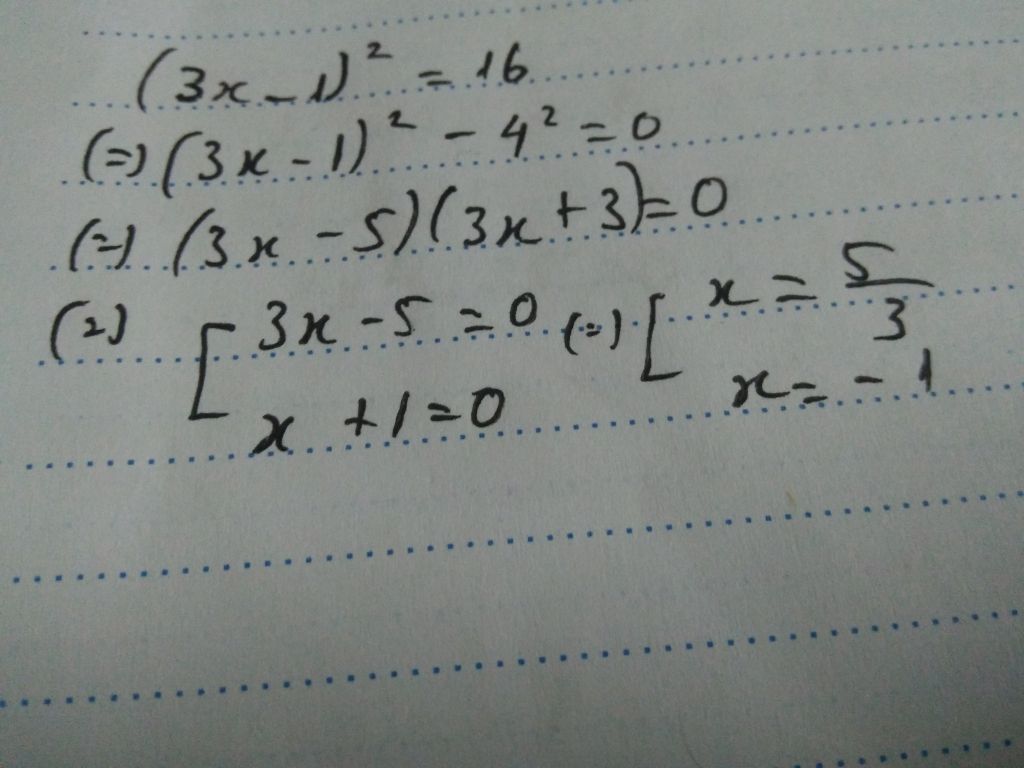 (3x - 1)² = 16
(=) (3x - 1)² - 4² = 0
(=) (3x - 5)(3x + 3) = 0
(=) [ 3x - 5 = 0 (=) [ x = 5/3
x + 1 = 0 x = - 1